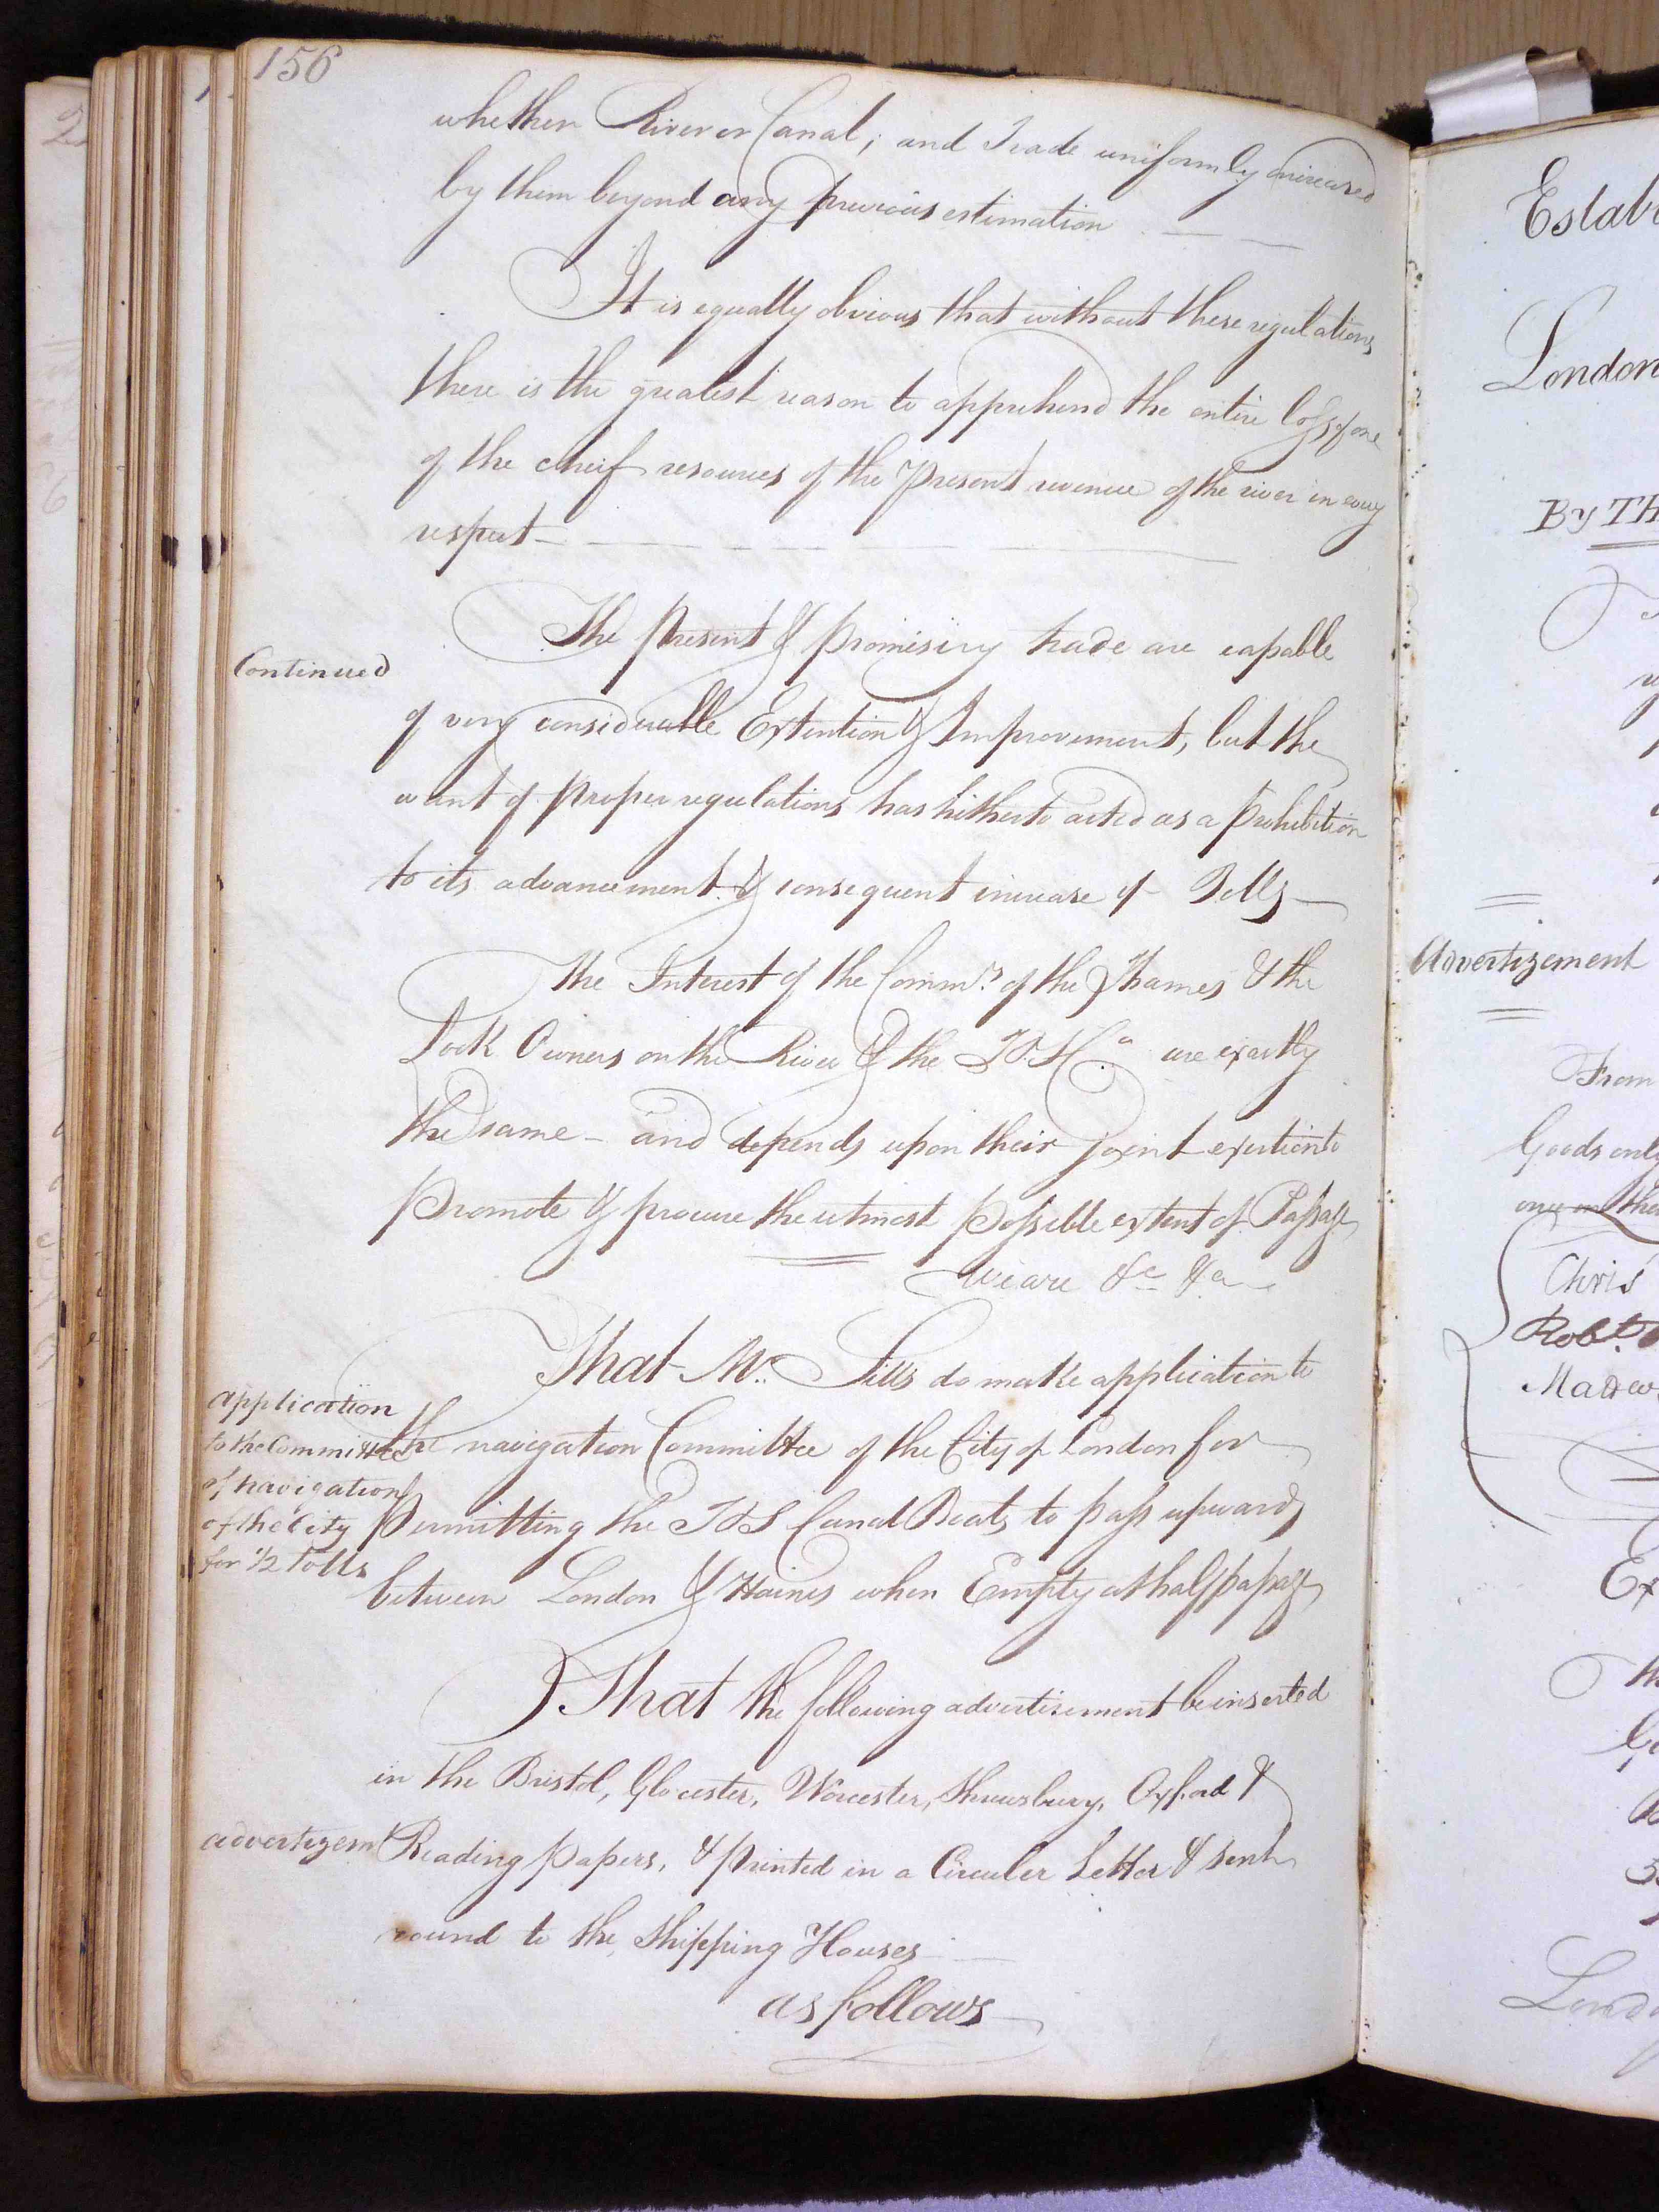 156
whether River or Canal; and Trade uniformly increased
by them beyond any previous estimation
It is equally obvious that without these regulations
there is the greatest reason to apprehend the entire loss of one
of the cheif resources of the Present revenue of the river in every
respect
Continued
The Present & promising trade are capable
of very considerable Extention & Improvement, but the
want of proper regulations has hitherto acted as a Prohibition
to its advancement & consequent increase of Tolls
The Interest of the Commrs. of the Thames & the
Lock Owners on the River & the T&S Co. are exactly
the same - and depends upon their joint exertion to
Promote & procure the utmost Possible extent of Passage
We are &c &a
application
to the Committee
of navigation
of the City
for 1/2 Tolls
That Mr. Sills do make application to
the navigation Committee of the City of London for
Permitting the T&S Canal Boats to pass upwards
between London & Staines when Empty at half passage
That the following advertisement be inserted
in the Bristol, Glocester, Worcester, Shrewsbury, Oxford &
advertizemt
Reading papers, & printed in a Circuler Letter & sent
round to the Shipping Houses
as follows
Establ
London
By Th
Advertizement
From
Goods only
once on the
Chris
Robt.
Mathew
Ex
Lond